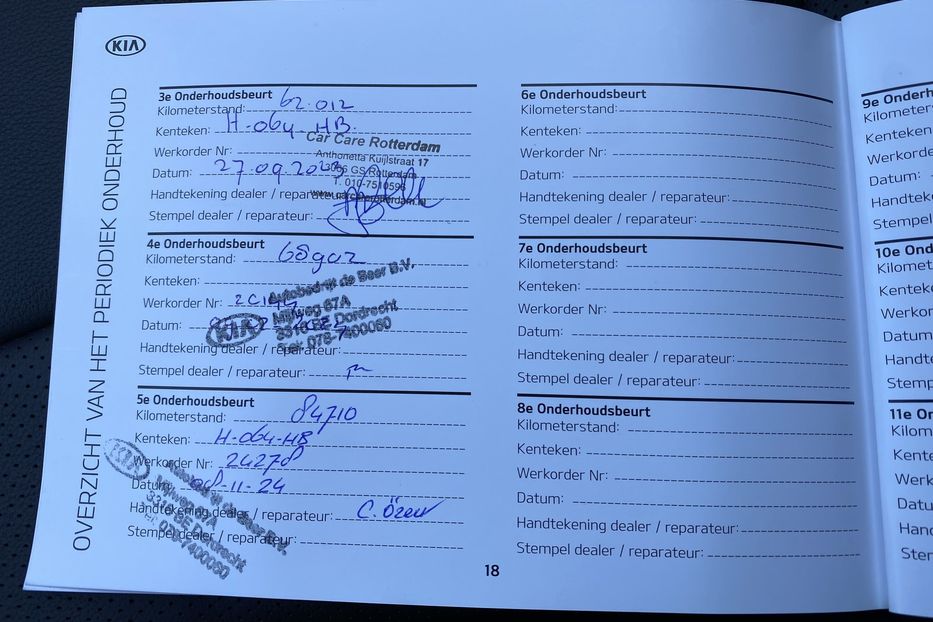 KIA
OVERZICHT VAN HET PERIODIEK ONDERHOUD
3e Onderhoudsbeurt
Kilometerstand: 62.012
Kenteken: H-064-HB.
Car Care Rotterdam
Werkorder Nr:
Anthonetta Kuijlstraat 17
Datum: 27.09.2023
3066 GS Rotterdam
T. 010-7510596
Handtekening dealer / reparateur:
Stempel dealer / reparateur:
4e Onderhoudsbeurt
Kilometerstand:
Kenteken:
Autobedrijf de Beer B.V.
Werkorder Nr:
Mijlweg 67A
Datum:
KIA
3316 BE Dordrecht
Tel: 078-7400060
Handtekening dealer / reparateur:
Stempel dealer / reparateur:
5e Onderhoudsbeurt
Kilometerstand: 84710
Kenteken: H-064-HB
Werkorder Nr: 24278
Datum: 08-11-24
Handtekening dealer / reparateur: C. Özen
Stempel dealer / reparateur:
KIA
Autobedrijf de Beer B.V.
Mijlweg 67A
3316 BE Dordrecht
Tel: 078-7400060
6e Onderhoudsbeurt
Kilometerstand:
Kenteken:
Werkorder Nr:
Datum:
Handtekening dealer / reparateur:
Stempel dealer / reparateur:
7e Onderhoudsbeurt
Kilometerstand:
Kenteken:
Werkorder Nr:
Datum:
Handtekening dealer / reparateur:
Stempel dealer / reparateur:
8e Onderhoudsbeurt
Kilometerstand:
Kenteken:
Werkorder Nr:
Datum:
Handtekening dealer / reparateur:
Stempel dealer / reparateur:
18
9e Onderh
Kilometer
Kenteken:
Werkorde
Datum:
Handteke
Stempel
10e Ond
Kilomet
Kenteke
Werkor
Datum
Handt
Stemp
11e On
Kilom
Kente
Werk
Datu
Hand
Ster